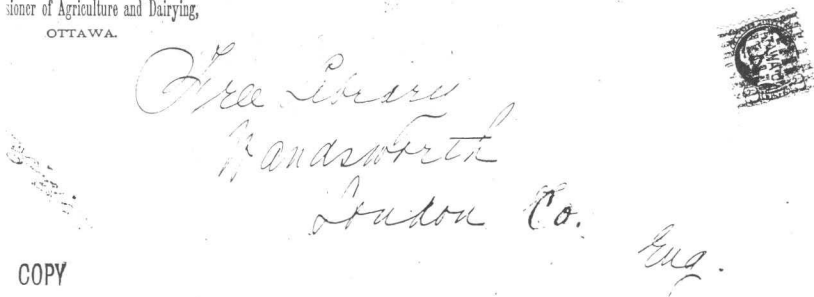 sioner of Agriculture and Dairying,
OTTAWA.
Free Library
Wandsworth
London Co.
Eng.
COPY